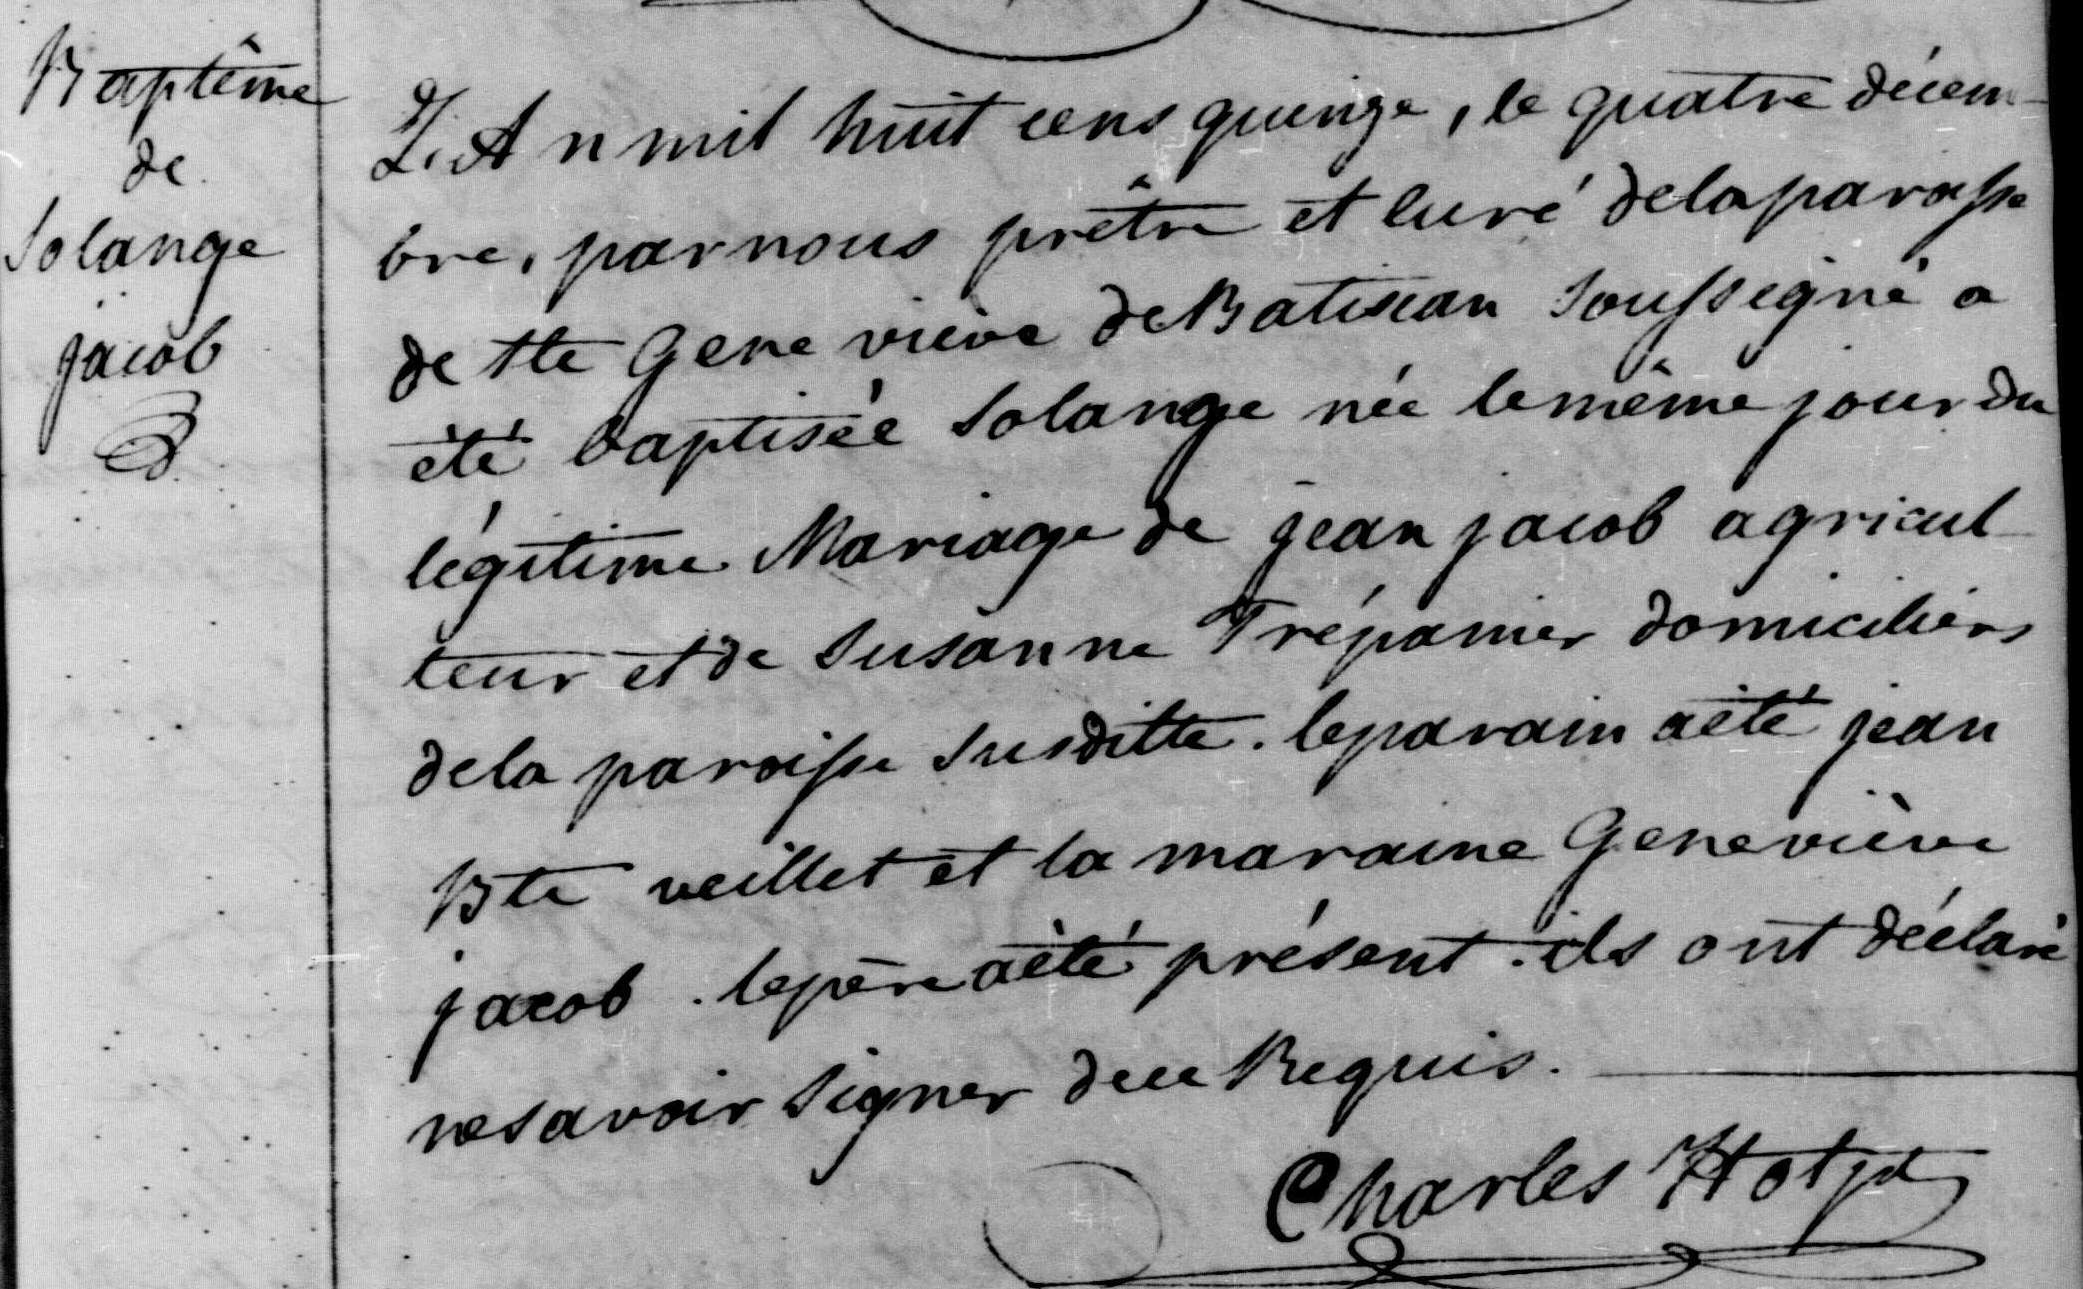 Baptême
de
Solange
jacob
L'An mil huit cens quinze, le quatre décem-
bre, par nous prêtre et curé de la paroisse
de Ste Geneviève de Batiscan soussigné a
été baptisée Solange née le même jour du
légitime Mariage de jean jacob agricul-
teur et de Susanne Trépanier domiciliers
de la paroisse susditte. le parain a été jean
Bte veillet et la maraine Geneviève
jacob. le père a été présent. ils ont déclaré
ne savoir signer de ce Requis.
Charles